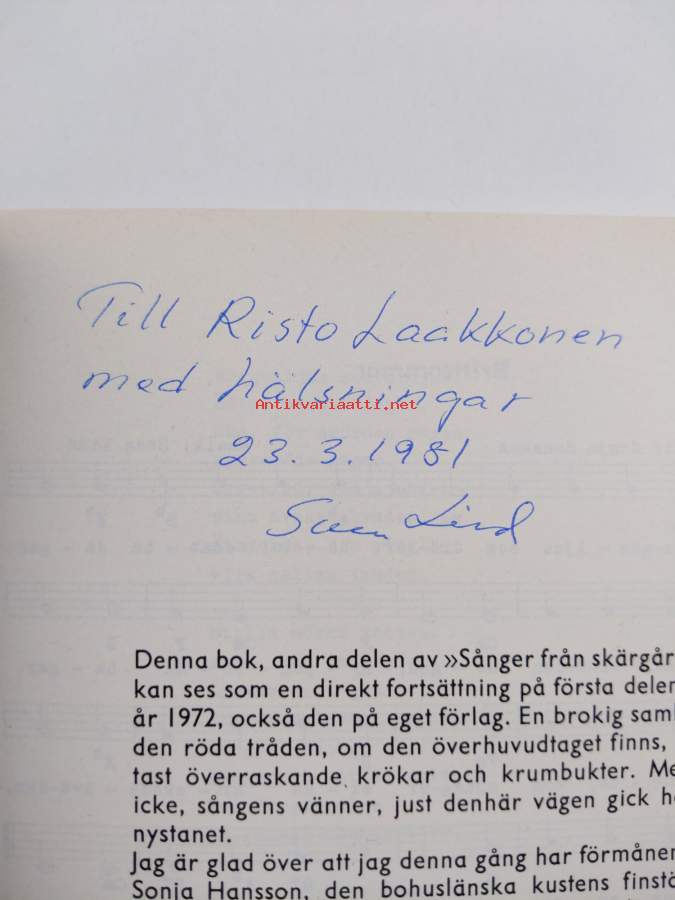 Till Risto Laakkonen
med hälsningar
Antikvariaatti.net
23.3.1981
Sven Lind
Denna bok, andra delen av »Sånger från skärgår
kan ses som en direkt fortsättning på första delen
år 1972, också den på eget förlag. En brokig saml
den röda tråden, om den överhuvudtaget finns,
tast överraskande krökar och krumbukter. Me
icke, sångens vänner, just denhär vägen gick h
nystanet.
Jag är glad över att jag denna gång har förmåner
Sonja Hansson, den bohuslänska kustens finstä